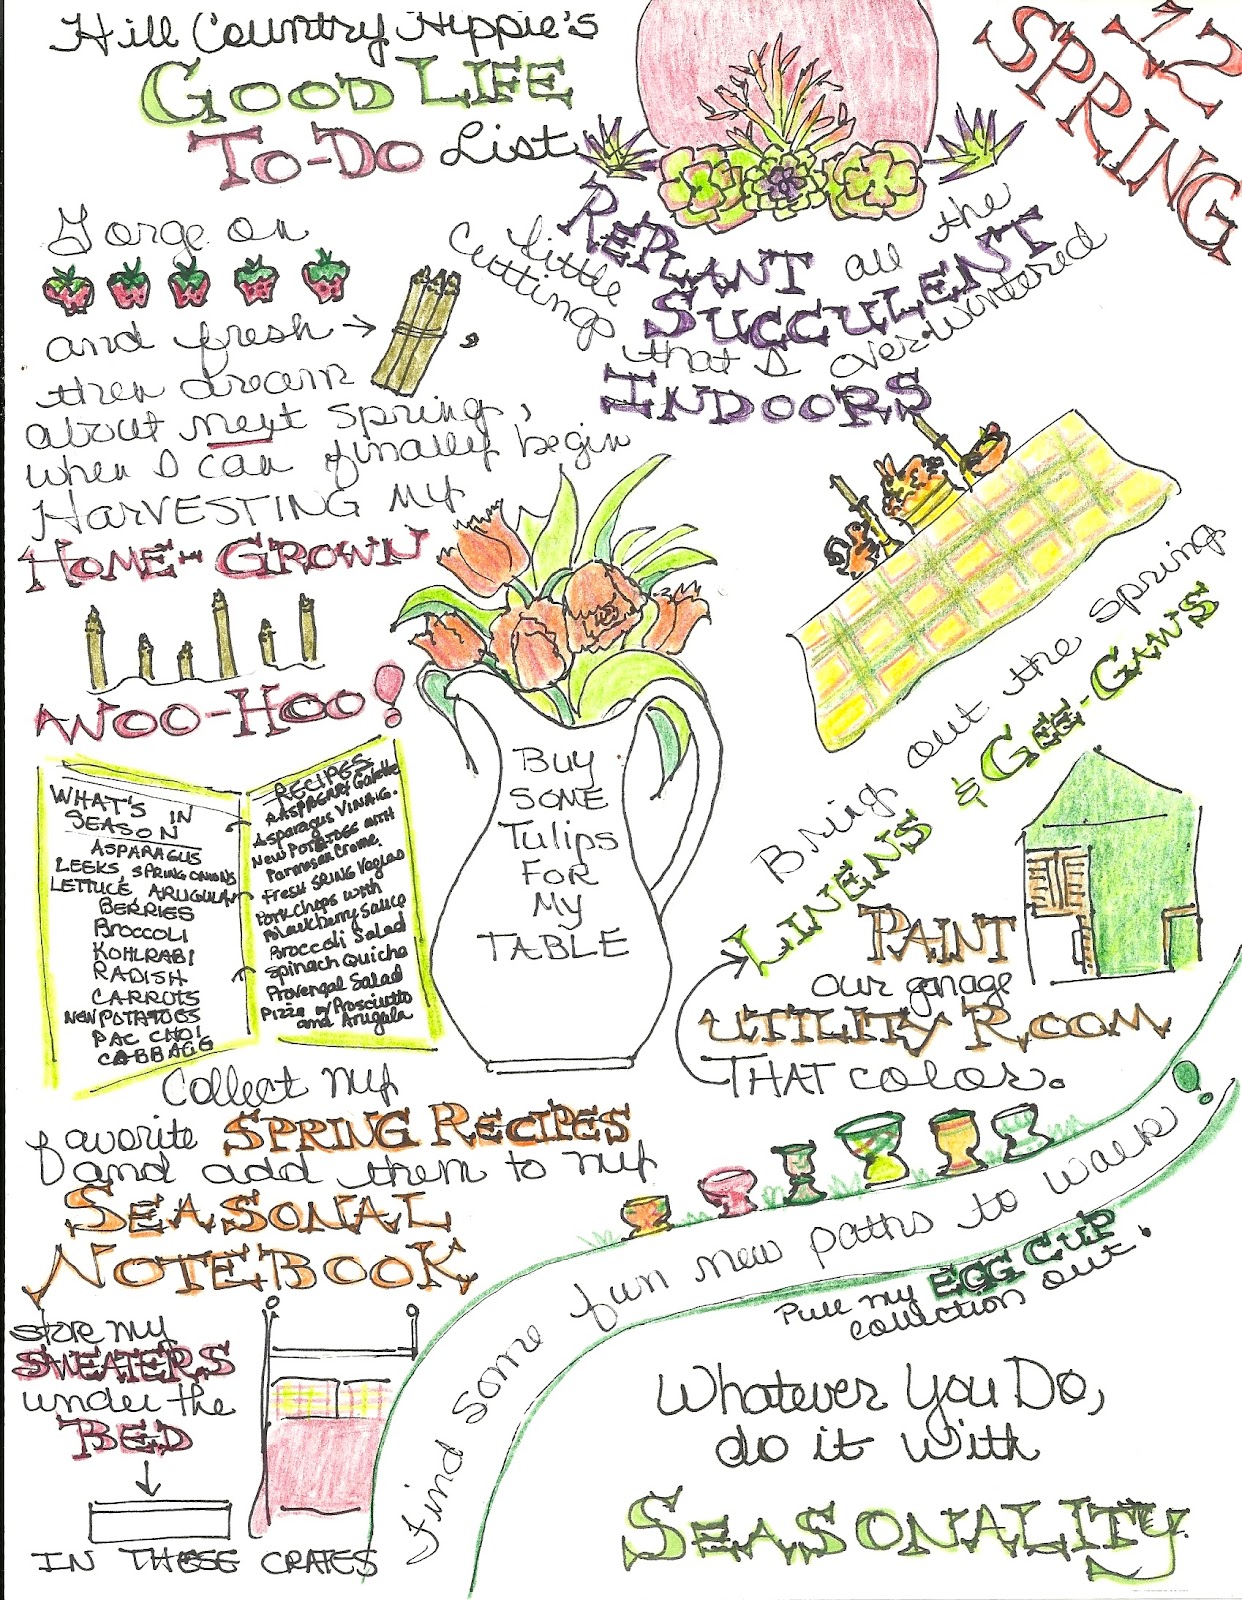 Hill Country Hippie's
GOOD LIFE
TO-DO List
SPRING
12
Gorge on
and fresh
,
then dream
about next spring,
when I can finally begin
HARVESTING my
HOME-GROWN
WOO-HOO!
Little
Cuttings
REPLANT all the
SUCCULENT
that I over-wintered
INDOORS
Bring out the spring
LINENS & GEE-GAWS
BUY
SOME
Tulips
FOR
My
TABLE
WHAT'S IN
SEASON
ASPARAGUS
LEEKS, SPRING ONIONS
LETTUCE, ARUGULA
BERRIES
BROCCOLI
KOHLRABI
RADISH
CARROTS
NEW POTATOES
PAC CHOI
CABBAGE
RECIPES
RASPBERRY Galette
Asparagus VINAIG.
NEW POTATOES WITH
Parmesan Creme
FRESH SRING Vegies
Pork Chops with
Blackberry Sauce
Broccoli Salad
Spinach Quiche
Provençal Salad
Pizza w/ Prosciutto
and Arugula
Collect my
favorite SPRING RECIPES
and add them to my
SEASONAL
NOTEBOOK
PAINT
our garage
UTILITY ROOM
THAT color.
Find some fun new paths to walk!
Pull my EGG CUP
collection out.
store my
SWEATERS
under the
BED
IN THESE CRATES
Whatever You Do,
do it with
SEASONALITY